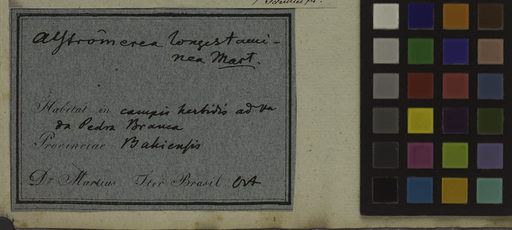 Alströmerea longistami-
nea Mart.
Habitat in campis herbidis ad Va
da Pedra Branca
Provinciae Bahiensis
Dr. Martius Iter Brasil.